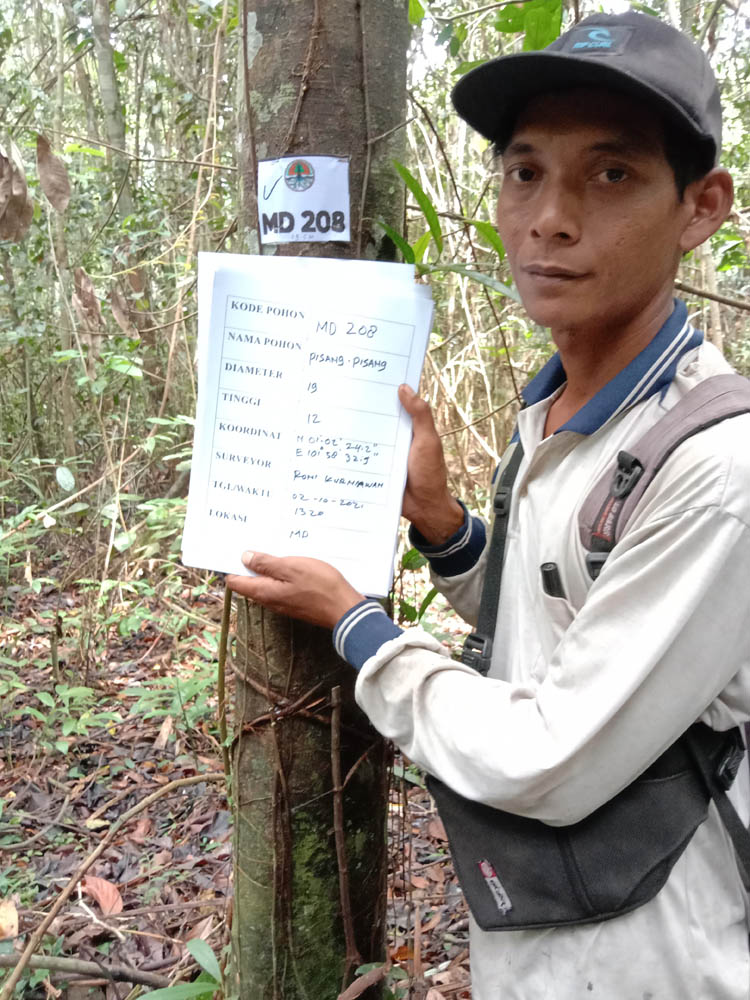 RIP CURL
MD 208
KODE POHON MD 208
NAMA POHON PISANG-PISANG
DIAMETER 19
TINGGI 12
KOORDINAT N 01°.02' 24.2"
E 101°58' 32.9
SURVEYOR RONI KURNIAWAN
TGL/WAKTU 02-10-2021
1320
LOKASI MD